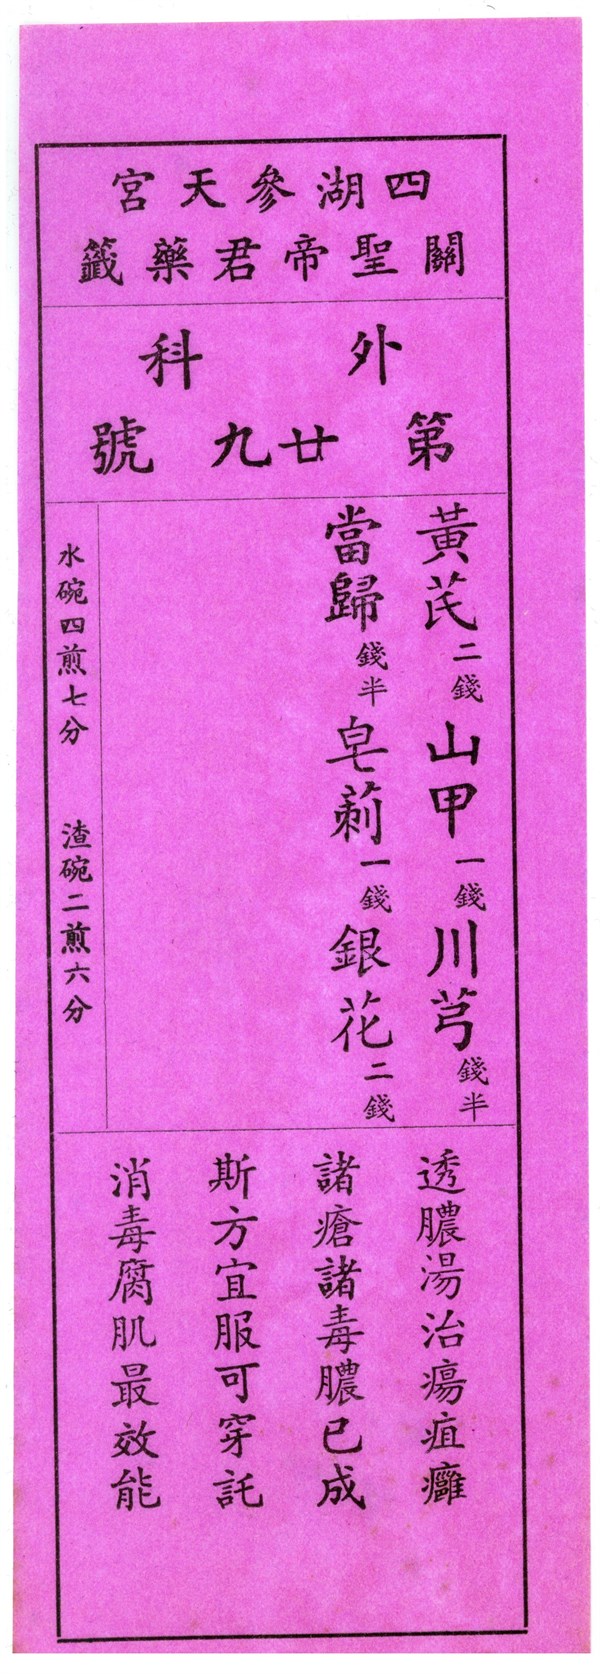 四湖參天宮
關聖帝君藥籤
外科
第廿九號
黃芪二錢 山甲一錢 川芎錢半
當歸錢半 皂莿一錢 銀花二錢
水碗四煎七分 渣碗二煎六分
透膿湯治瘍疽癰
諸瘡諸毒膿已成
斯方宜服可穿託
消毒腐肌最效能